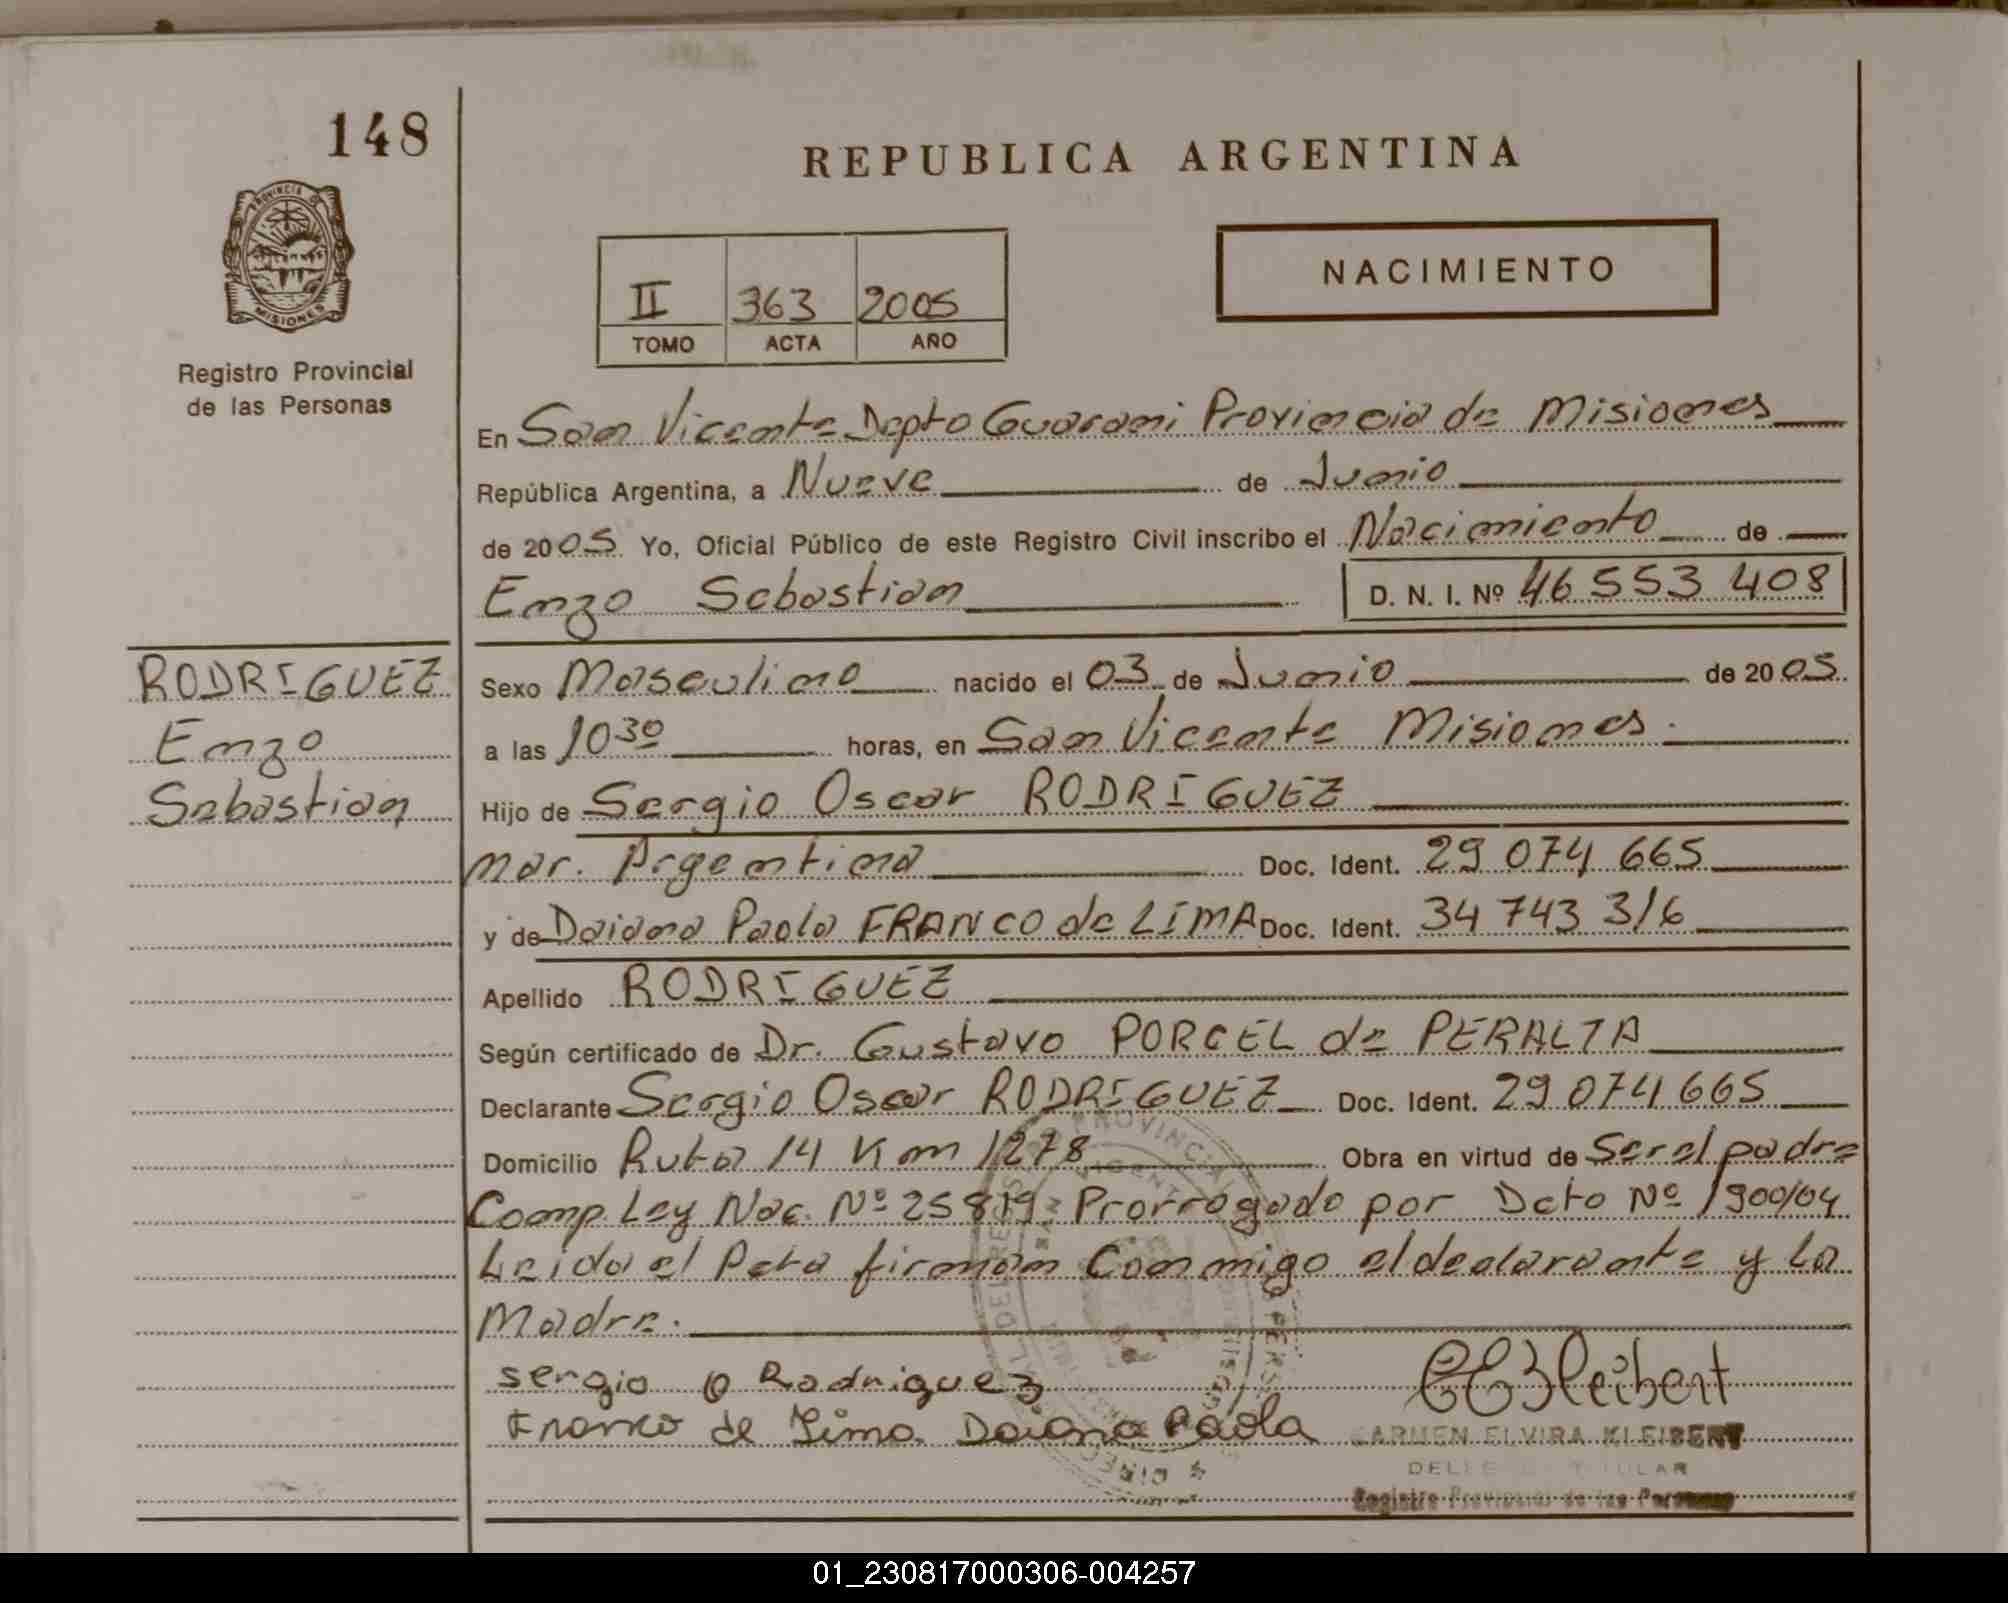 148
REPUBLICA ARGENTINA
PROVINCIA DE
MISIONES
Registro Provincial
de las Personas
NACIMIENTO
II 363 2005
TOMO ACTA AÑO
En San Vicente Depto Guarani Provincia de Misiones
República Argentina, a Nueve de Junio
de 2005 Yo, Oficial Público de este Registro Civil inscribo el Nacimiento de
Enzo Sebastian D. N. I. Nº 46 553 408
RODRIGUEZ
Enzo
Sebastian
Sexo Masculino nacido el 03 de Junio de 2005
a las 10 30 horas, en San Vicente Misiones.
Hijo de Sergio Oscar RODRIGUEZ
nac. Argentina Doc. Ident. 29 074 665
y de Daiana Paola FRANCO de LIMA Doc. Ident. 34 743 316
Apellido RODRIGUEZ
Según certificado de Dr. Gustavo PORCEL de PERALTA
Declarante Sergio Oscar RODRIGUEZ Doc. Ident. 29 074 665
Domicilio Ruta 14 Km 1278 Obra en virtud de Ser el padre
Comp. Ley Nac. Nº 25819. Prorrogado por Dcto Nº 1900/04
Leida el Acta firman Conmigo el declarante y la
Madre.
sergio O Rodriguez
Franco de Lima Daiana Paola
CEKleibert
CARMEN ELVIRA KLEIBERT
Registro Provincial de las Personas
01_230817000306-004257